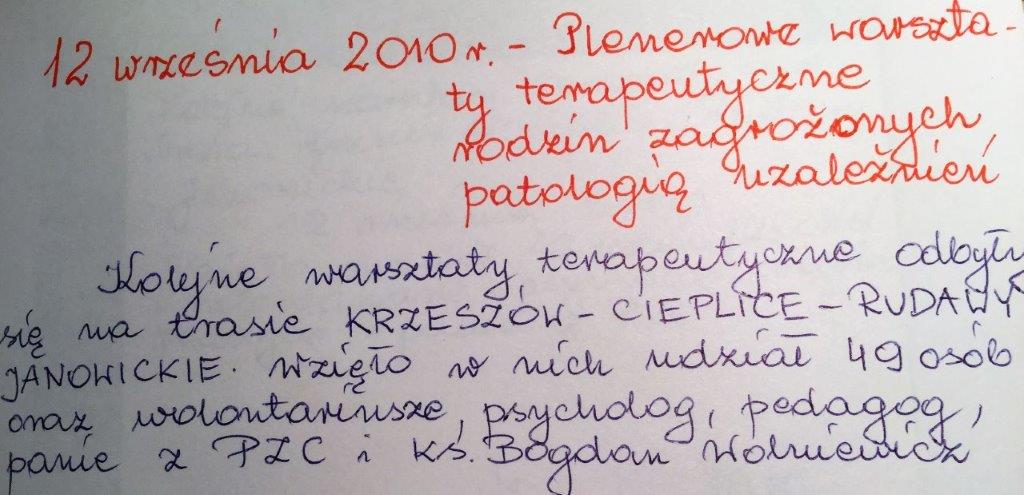 12 września 2010 r. - Plenerowe warszta-
ty terapeutyczne
rodzin zagrożonych
patologią uzależnień
Kolejne warsztaty terapeutyczne odbyły
się na trasie KRZESZÓW - CIEPLICE - RUDAWY
JANOWICKIE. Wzięło w nich udział 49 osób
oraz wolontariusze, psycholog, pedagog,
panie z PZC i ks. Bogdan Wolniewicz